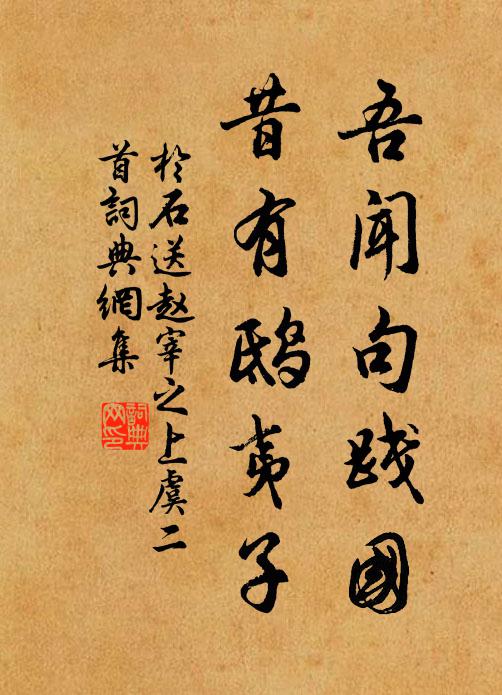 吾闻句践國
昔有鴟夷子
於石送赵宰之上虞二
首詞典網集
詞典
网印